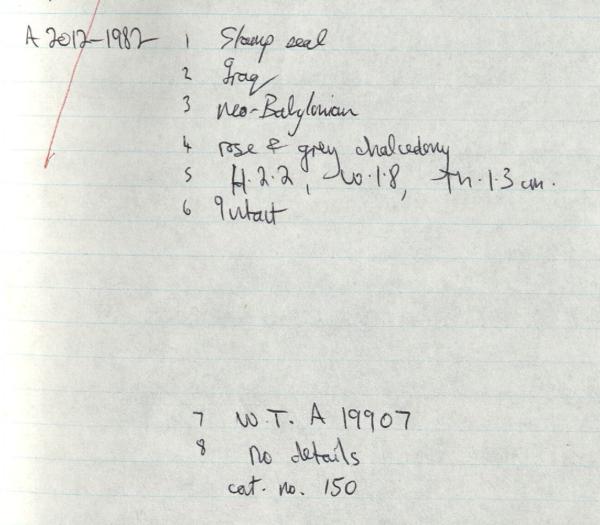 A 2012-1982 1 Stamp seal
2 Iraq
3 neo-Babylonian
4 rose & grey chalcedony
5 H.2.2, W.1.8, Th.1.3 cm.
6 Intact
7 W.T. A 19907
8 no details
cat. no. 150